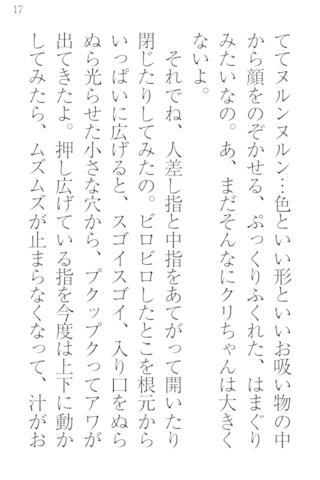 17
ててヌルンヌルン…色といい形といいお吸い物の中
から顔をのぞかせる、ぷっくりふくれた、はまぐり
みたいなの。あ、まだそんなにクリちゃんは大きく
ないよ。
それでね、人差し指と中指をあてがって開いたり
閉じたりしてみたの。ビロビロしたとこを根元から
いっぱいに広げると、スゴイスゴイ、入り口をぬら
ぬら光らせた小さな穴から、プクップクってアワが
出てきたよ。押し広げている指を今度は上下に動か
してみたら、ムズムズが止まらなくなって、汁がお